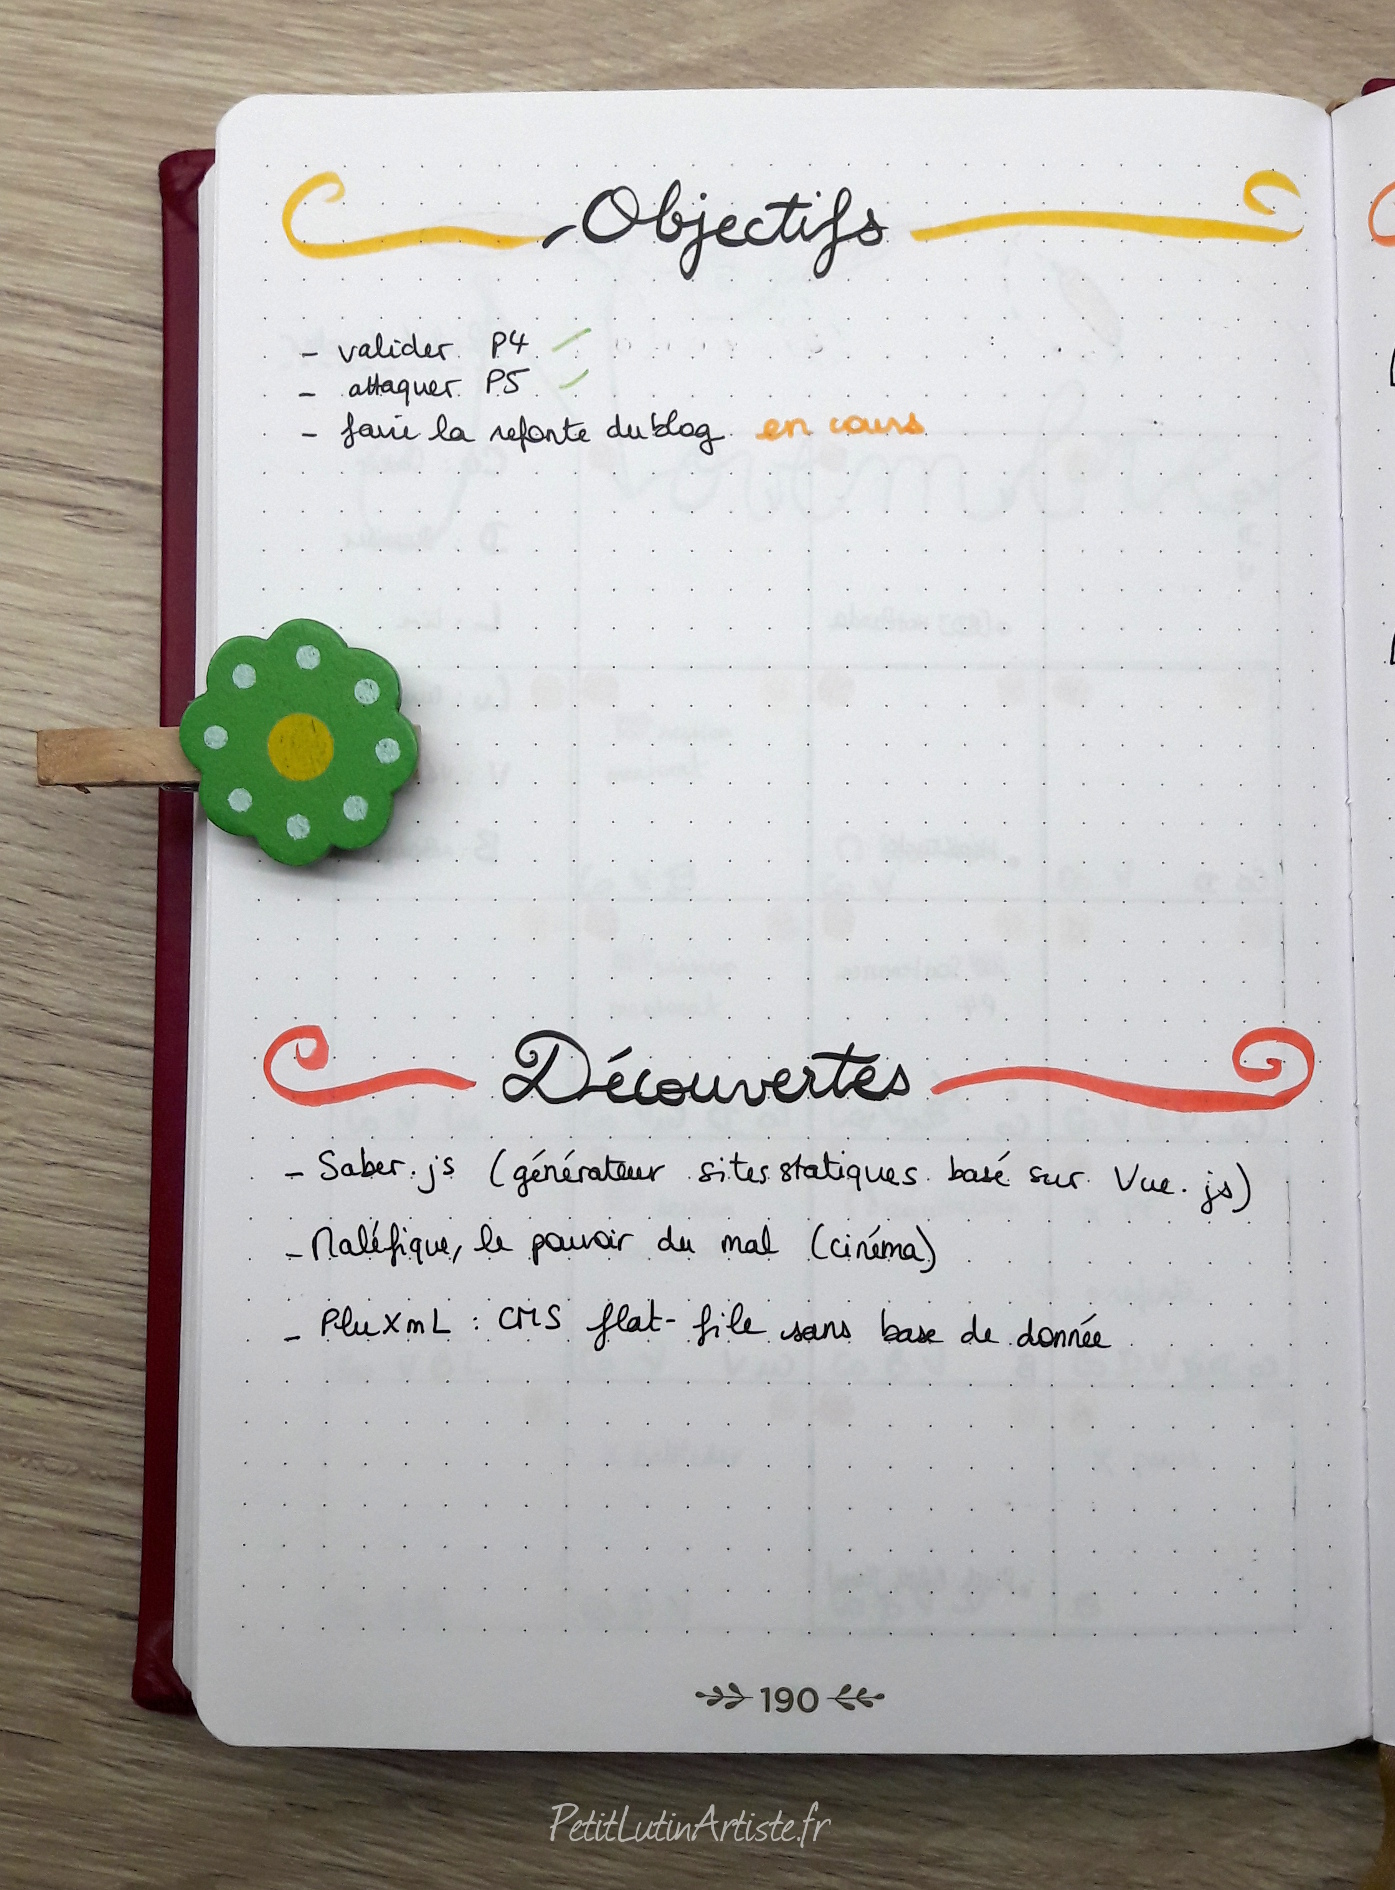 Objectifs
- valider P4
- attaquer P5
- faire la refonte du blog en cours
Découvertes
- Saber.js (générateur sites statiques basé sur Vue.js)
- Maléfique, le pouvoir du mal (cinéma)
- PluXmL : CMS flat-file sans base de donnée
190
PetitLutinArtiste.fr